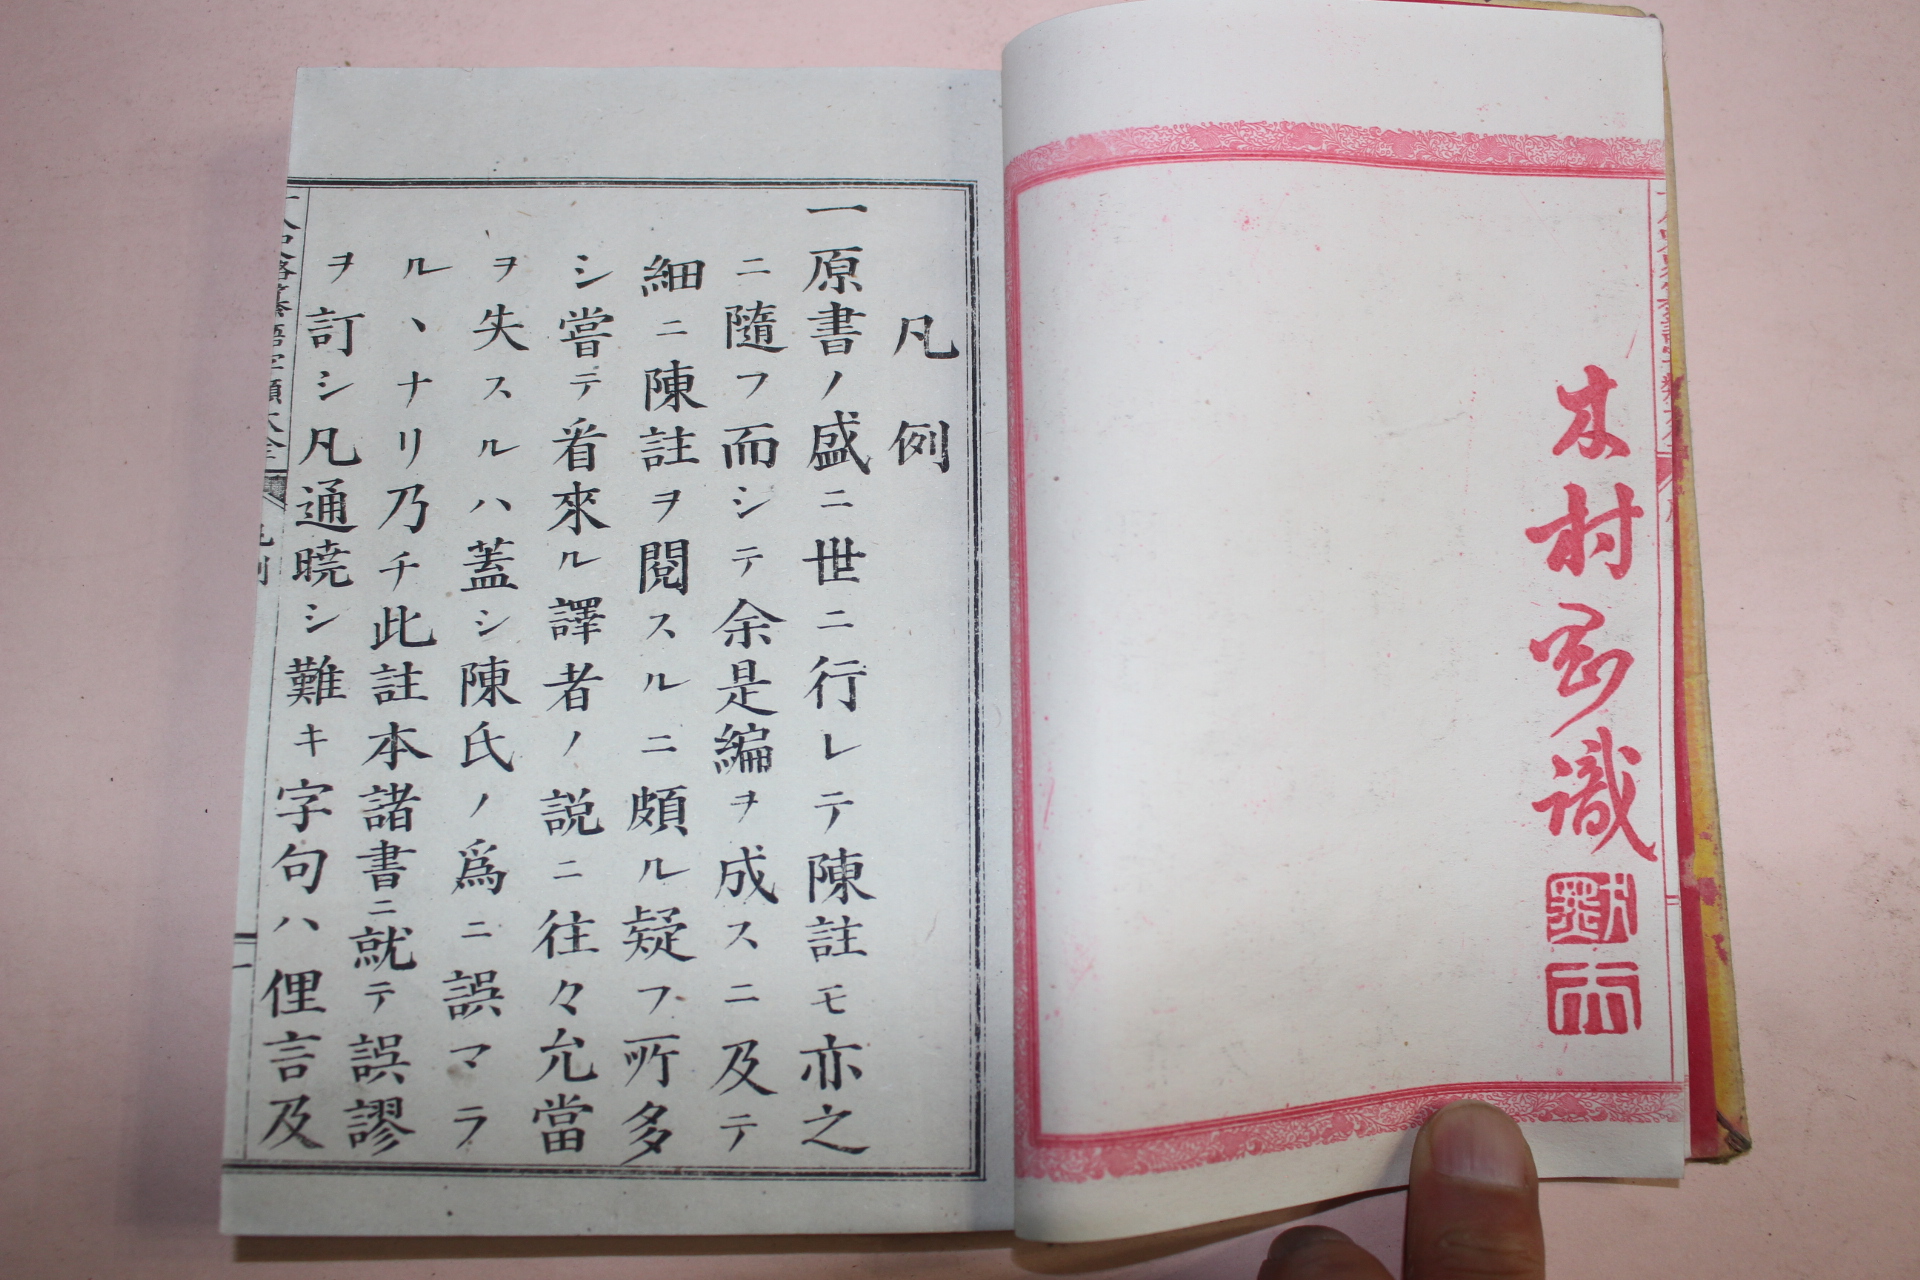 木村
識
凡例
一原書ノ盛ニ世ニ行レテ陳註モ亦之
ニ隨フ而シテ余是編ヲ成スニ及テ
細ニ陳註ヲ閲スルニ頗ル疑フ所多
シ嘗テ看來ル譯者ノ説ニ往々允當
ヲ失スルハ蓋シ陳氏ノ爲ニ誤マラ
ルヽナリ乃チ此註本諸書ニ就テ誤謬
ヲ訂シ凡通曉シ難キ字句ハ俚言及
史略
字類大全
凡例
一